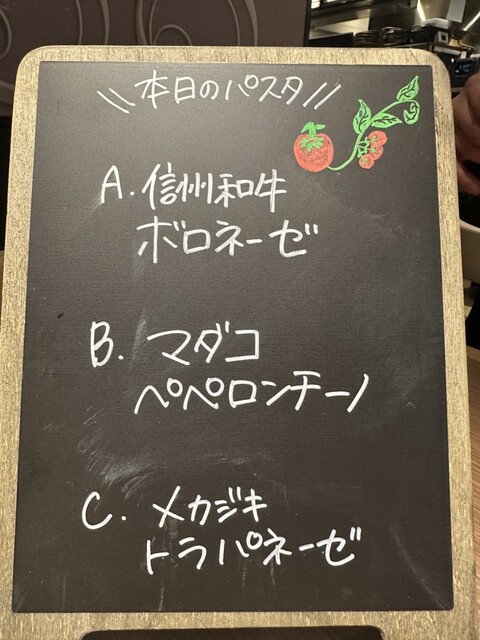 \\本日のパスタ//
A. 信州和牛
ボロネーゼ
B. マダコ
ペペロンチーノ
C. メカジキ
トラパネーゼ